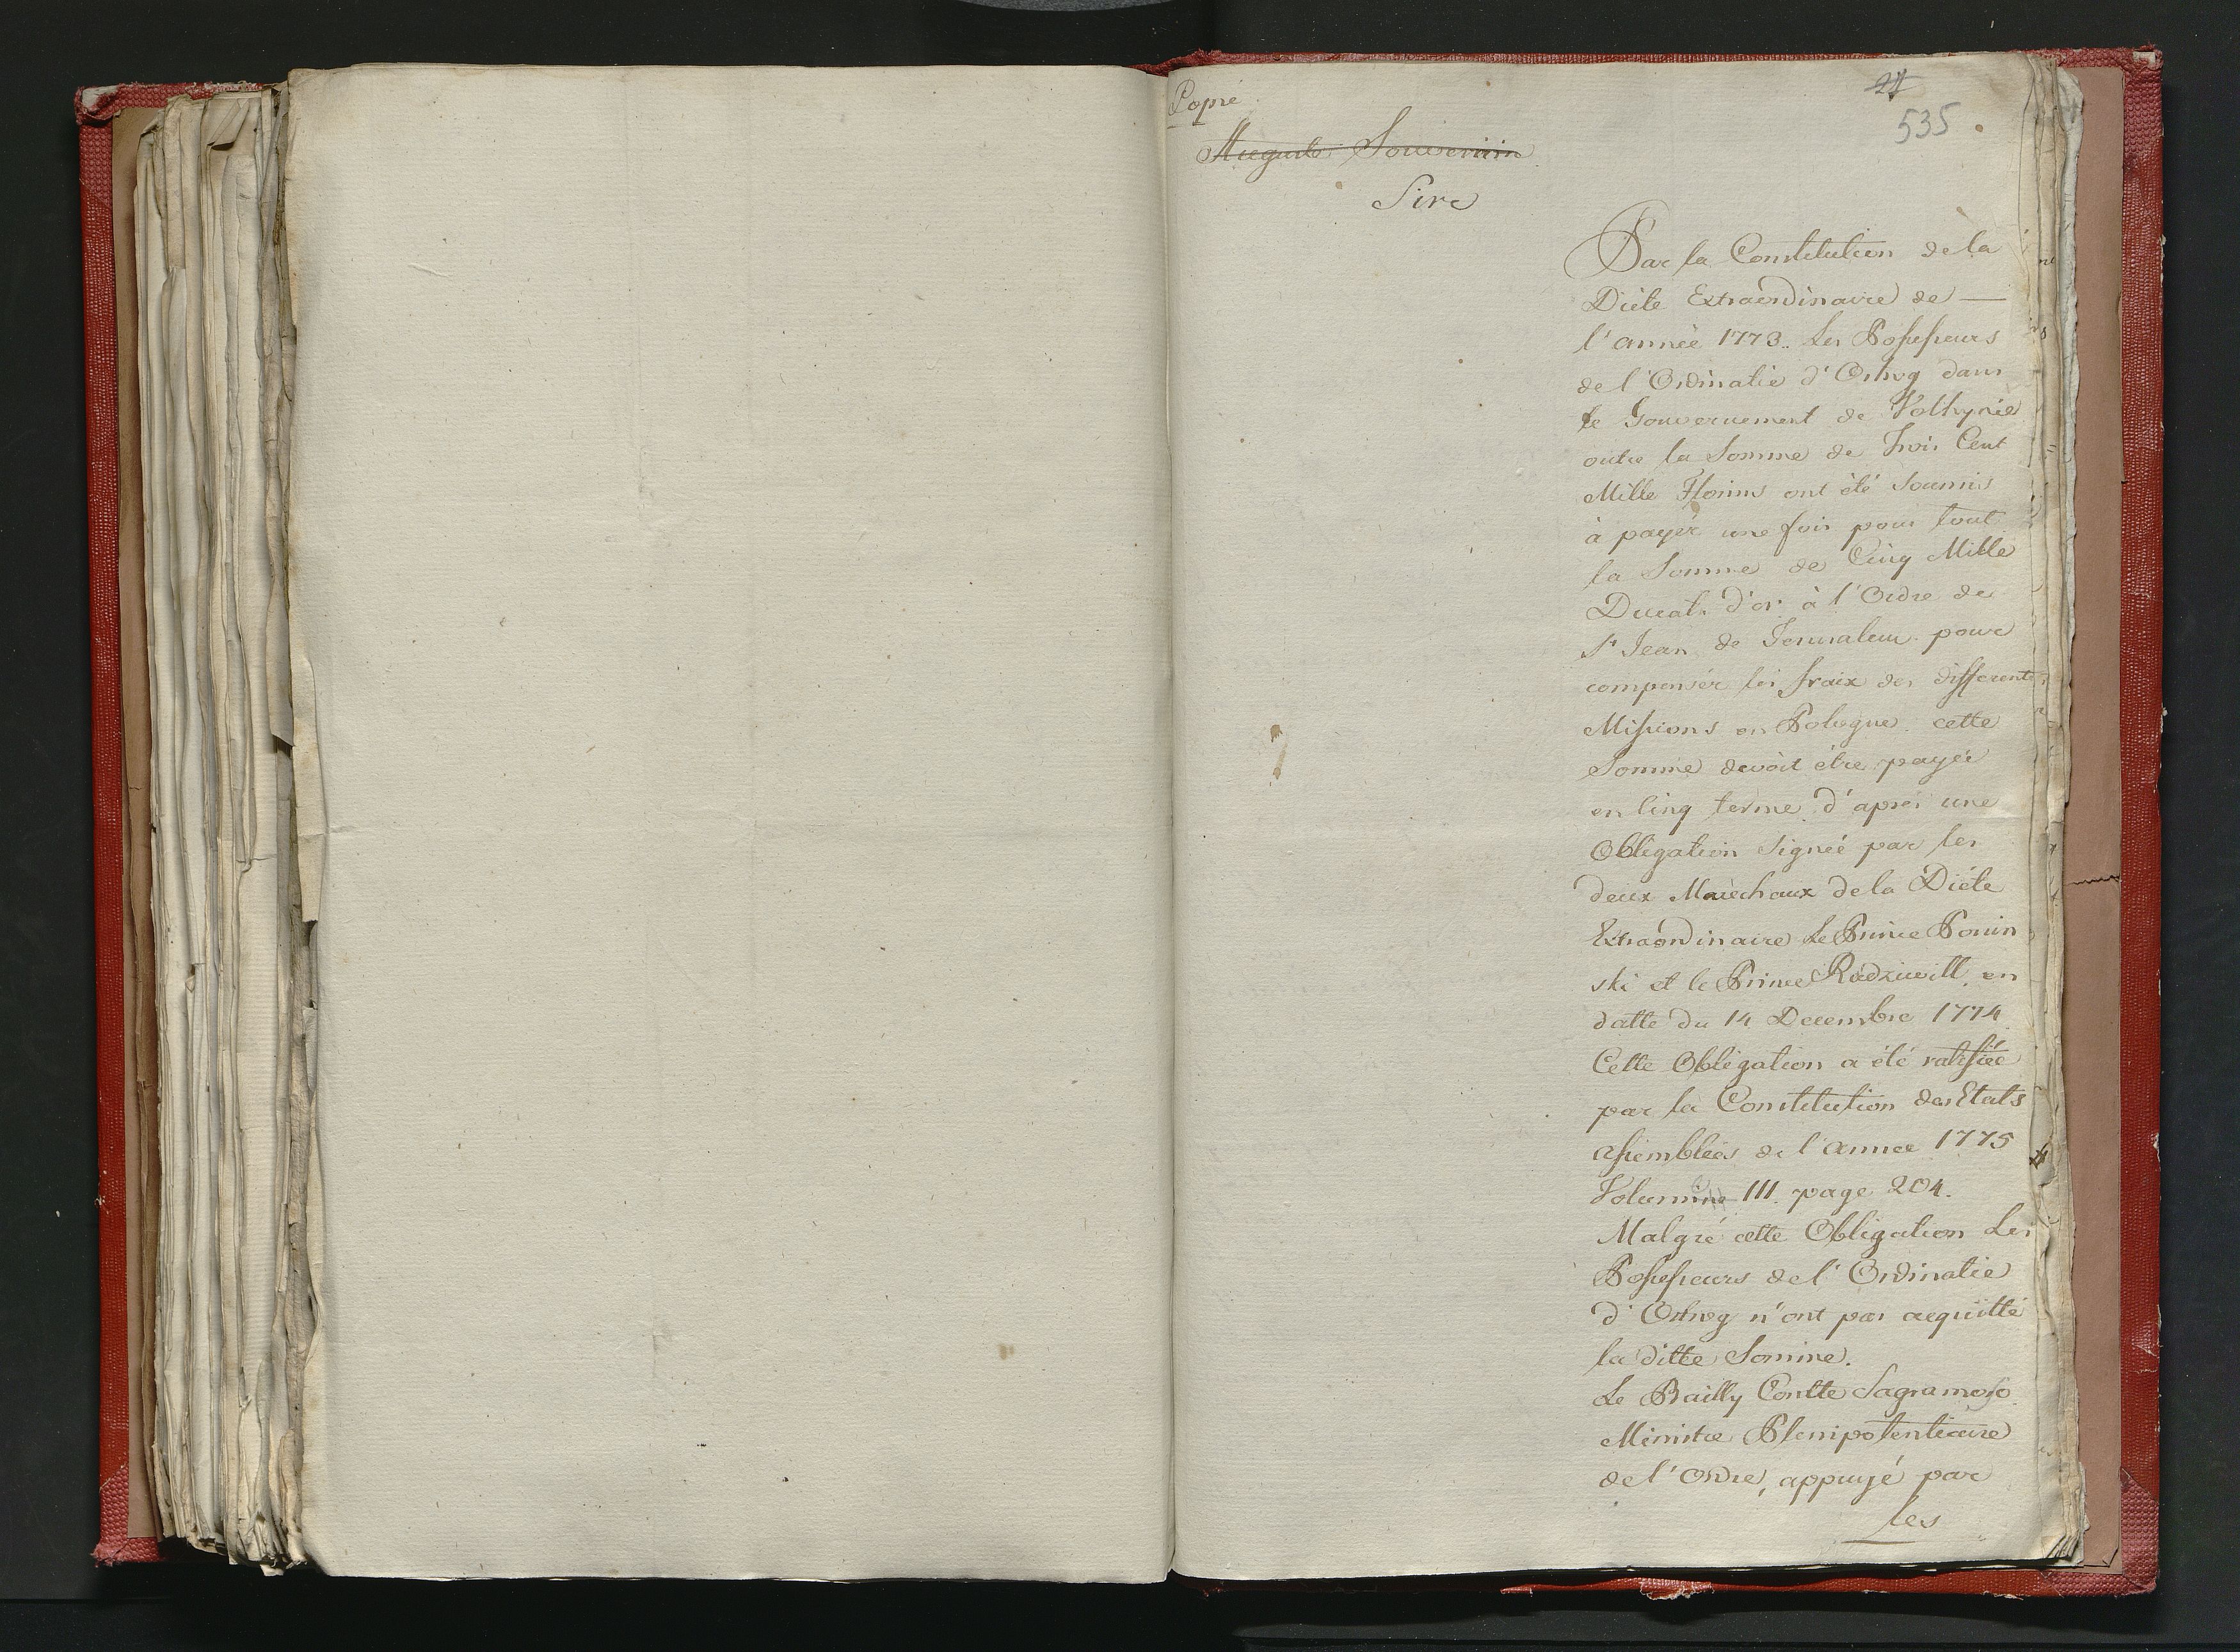 Copié
21
535
Auguste Souverain
Sire
Par la Constitution de la
Diéte Extraordinaire de —
l'année 1773. Les Possesseurs
de l'Ordinatie d'Ostrog dans
le Gouvernement de Volhynie
outre la Somme de Trois Cent
Mille Florins ont été Soumis
à payér une fois pour tout
la Somme de Cinq Mille
Ducats d'or à l'Ordre de
St Jean de Jerusalem pour
compensér les fraix des differents
Missions en Pologne. cette
Somme devoit étre payée
en Cinq terme d'aprés une
Obligation Signée par les
deux Maréchaux de la Diéte
Extraordinaire Le Prince Ponin
ski et le Prince Radziwill, en
datte du 14 Decembre 1774
Cette Obligation a été ratifiée
par la Constitution des Etats
assemblées de l'année 1775
Volumine III. page 204.
Malgré cette Obligation Les
Possesseurs de l'Ordinatie
d'Ostrog n'ont pas acquitté
la ditte Somme.
Le Bailly Comte Sagramoso
Ministre Plenipotentiaire
de l'Ordre, appuyé par
les